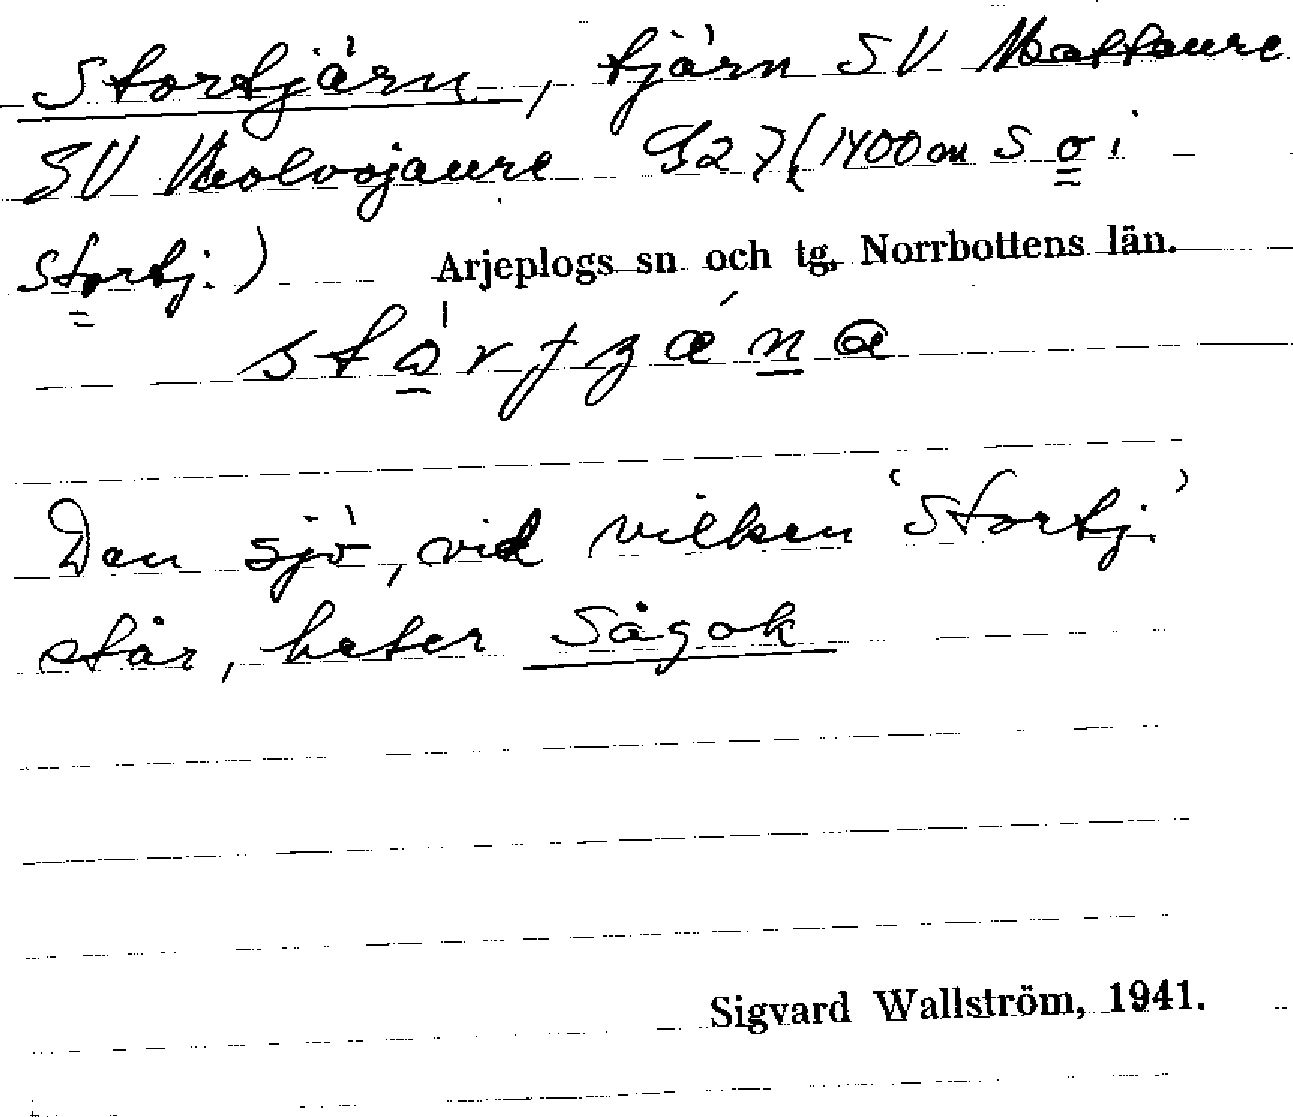 Stortjärn, tjärn SV Mattaure
SV Muolvojaure G27 (1400 m S o i
Stortj.)
Arjeplogs sn och tg, Norrbottens län.
Den sjö, vid vilken 'Stortj.'
står, heter Sågok
Sigvard Wallström, 1941.